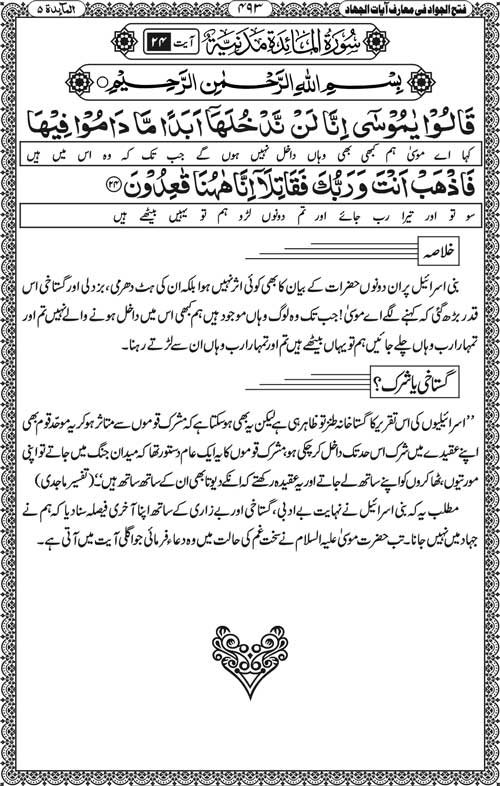 فتح الجواد فی معارف آیات الجهاد ۴۹۳ المآیدة ۵
سُوْرَةُ الْمَآئِدَةِ مَدَنِيَّةٌ آیت ۲۴
بِسْمِ اللهِ الرَّحْمٰنِ الرَّحِيْمِ
قَالُوْا يٰمُوْسٰٓى اِنَّا لَنْ نَّدْخُلَهَآ اَبَدًا مَّا دَامُوْا فِيْهَا
کہا اے موسیٰ ہم کبھی بھی وہاں داخل نہیں ہوں گے جب تک کہ وہ اس میں ہیں
فَاذْهَبْ اَنْتَ وَرَبُّكَ فَقَاتِلَآ اِنَّا هٰهُنَا قٰعِدُوْنَ ﴿۲۴﴾
سو تو اور تیرا رب جائے اور تم دونوں لڑو ہم تو یہیں بیٹھے ہیں
خلاصہ
بنی اسرائیل پر ان دونوں حضرات کے بیان کا بھی کوئی اثر نہیں ہوا بلکہ ان کی ہٹ دھرمی، بزدلی اور گستاخی اس
قدر بڑھ گئی کہ کہنے لگے اے موسیٰ! جب تک وہ لوگ وہاں موجود ہیں ہم کبھی اس میں داخل ہونے والے نہیں تم اور
تمہارا رب وہاں چلے جائیں ہم تو یہاں بیٹھے ہیں تم اور تمہارا رب وہاں ان سے لڑتے رہنا۔
گستاخی یا شرک؟
’’اسرائیلیوں کی اس تقریر کا گستاخانہ طنز تو ظاہر ہی ہے لیکن یہ بھی ہو سکتا ہے کہ مشرک قوموں سے متاثر ہو کر یہ موحّد قوم بھی
اپنے عقیدے میں شرک اس حد تک داخل کر چکی ہو، مشرک قوموں کا یہ ایک عام دستور تھا کہ میدان جنگ میں جاتے تو اپنی
مورتیوں، ٹھاکروں کو اپنے ساتھ لے جاتے اور یہ عقیدہ رکھتے کہ انکے دیوتا بھی ان کے ساتھ ساتھ ہیں‘‘ (تفسیر ماجدی)
مطلب یہ کہ بنی اسرائیل نے نہایت بے ادبی، گستاخی اور بے زاری کے ساتھ اپنا آخری فیصلہ سنا دیا کہ ہم نے
جہاد میں نہیں جانا۔ تب حضرت موسیٰ علیہ السلام نے سخت غم کی حالت میں وہ دعاء فرمائی جو اگلی آیت میں آتی ہے۔